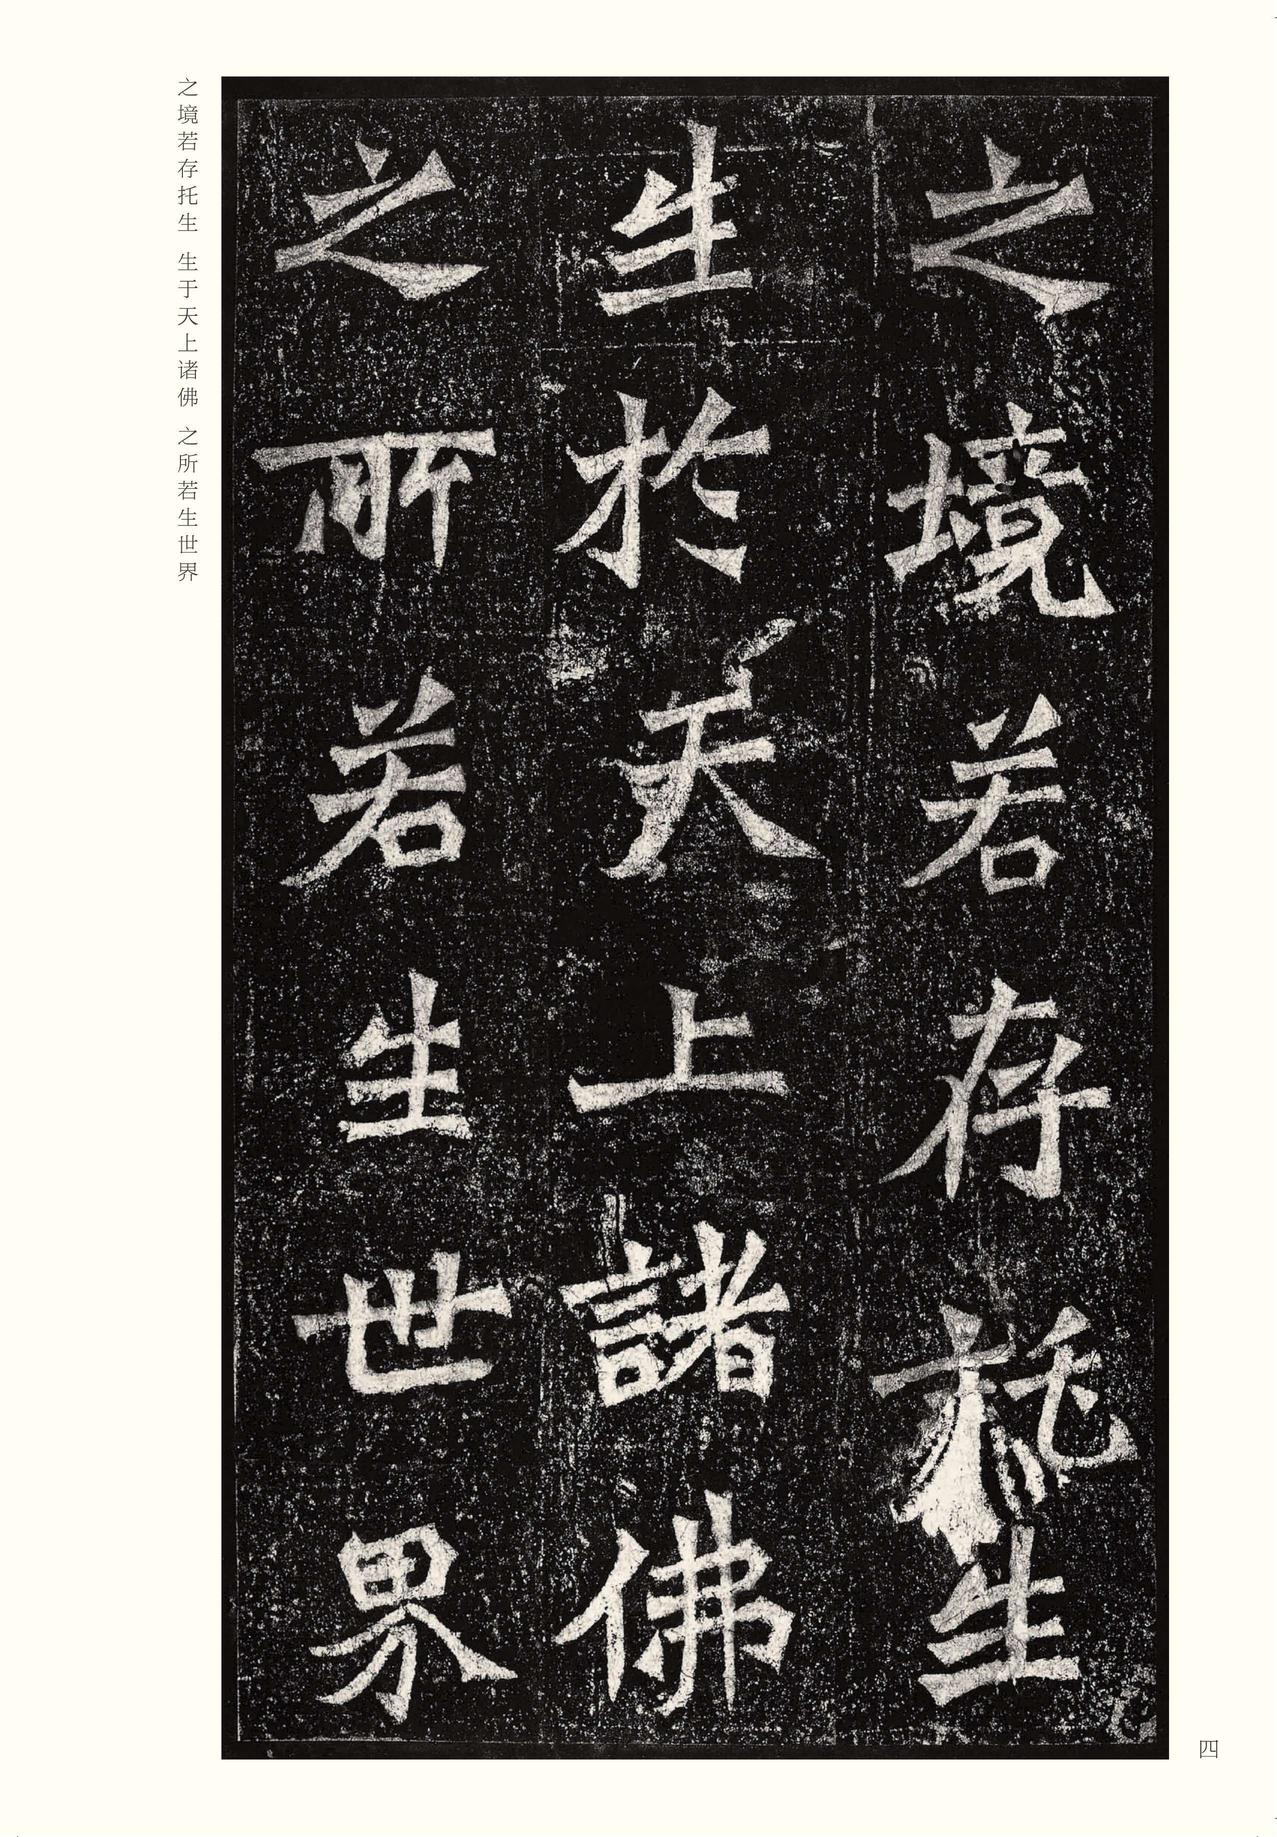 之境若存托生
生於天上諸佛
之所若生世界
之境若存托生 生于天上诸佛 之所若生世界
四